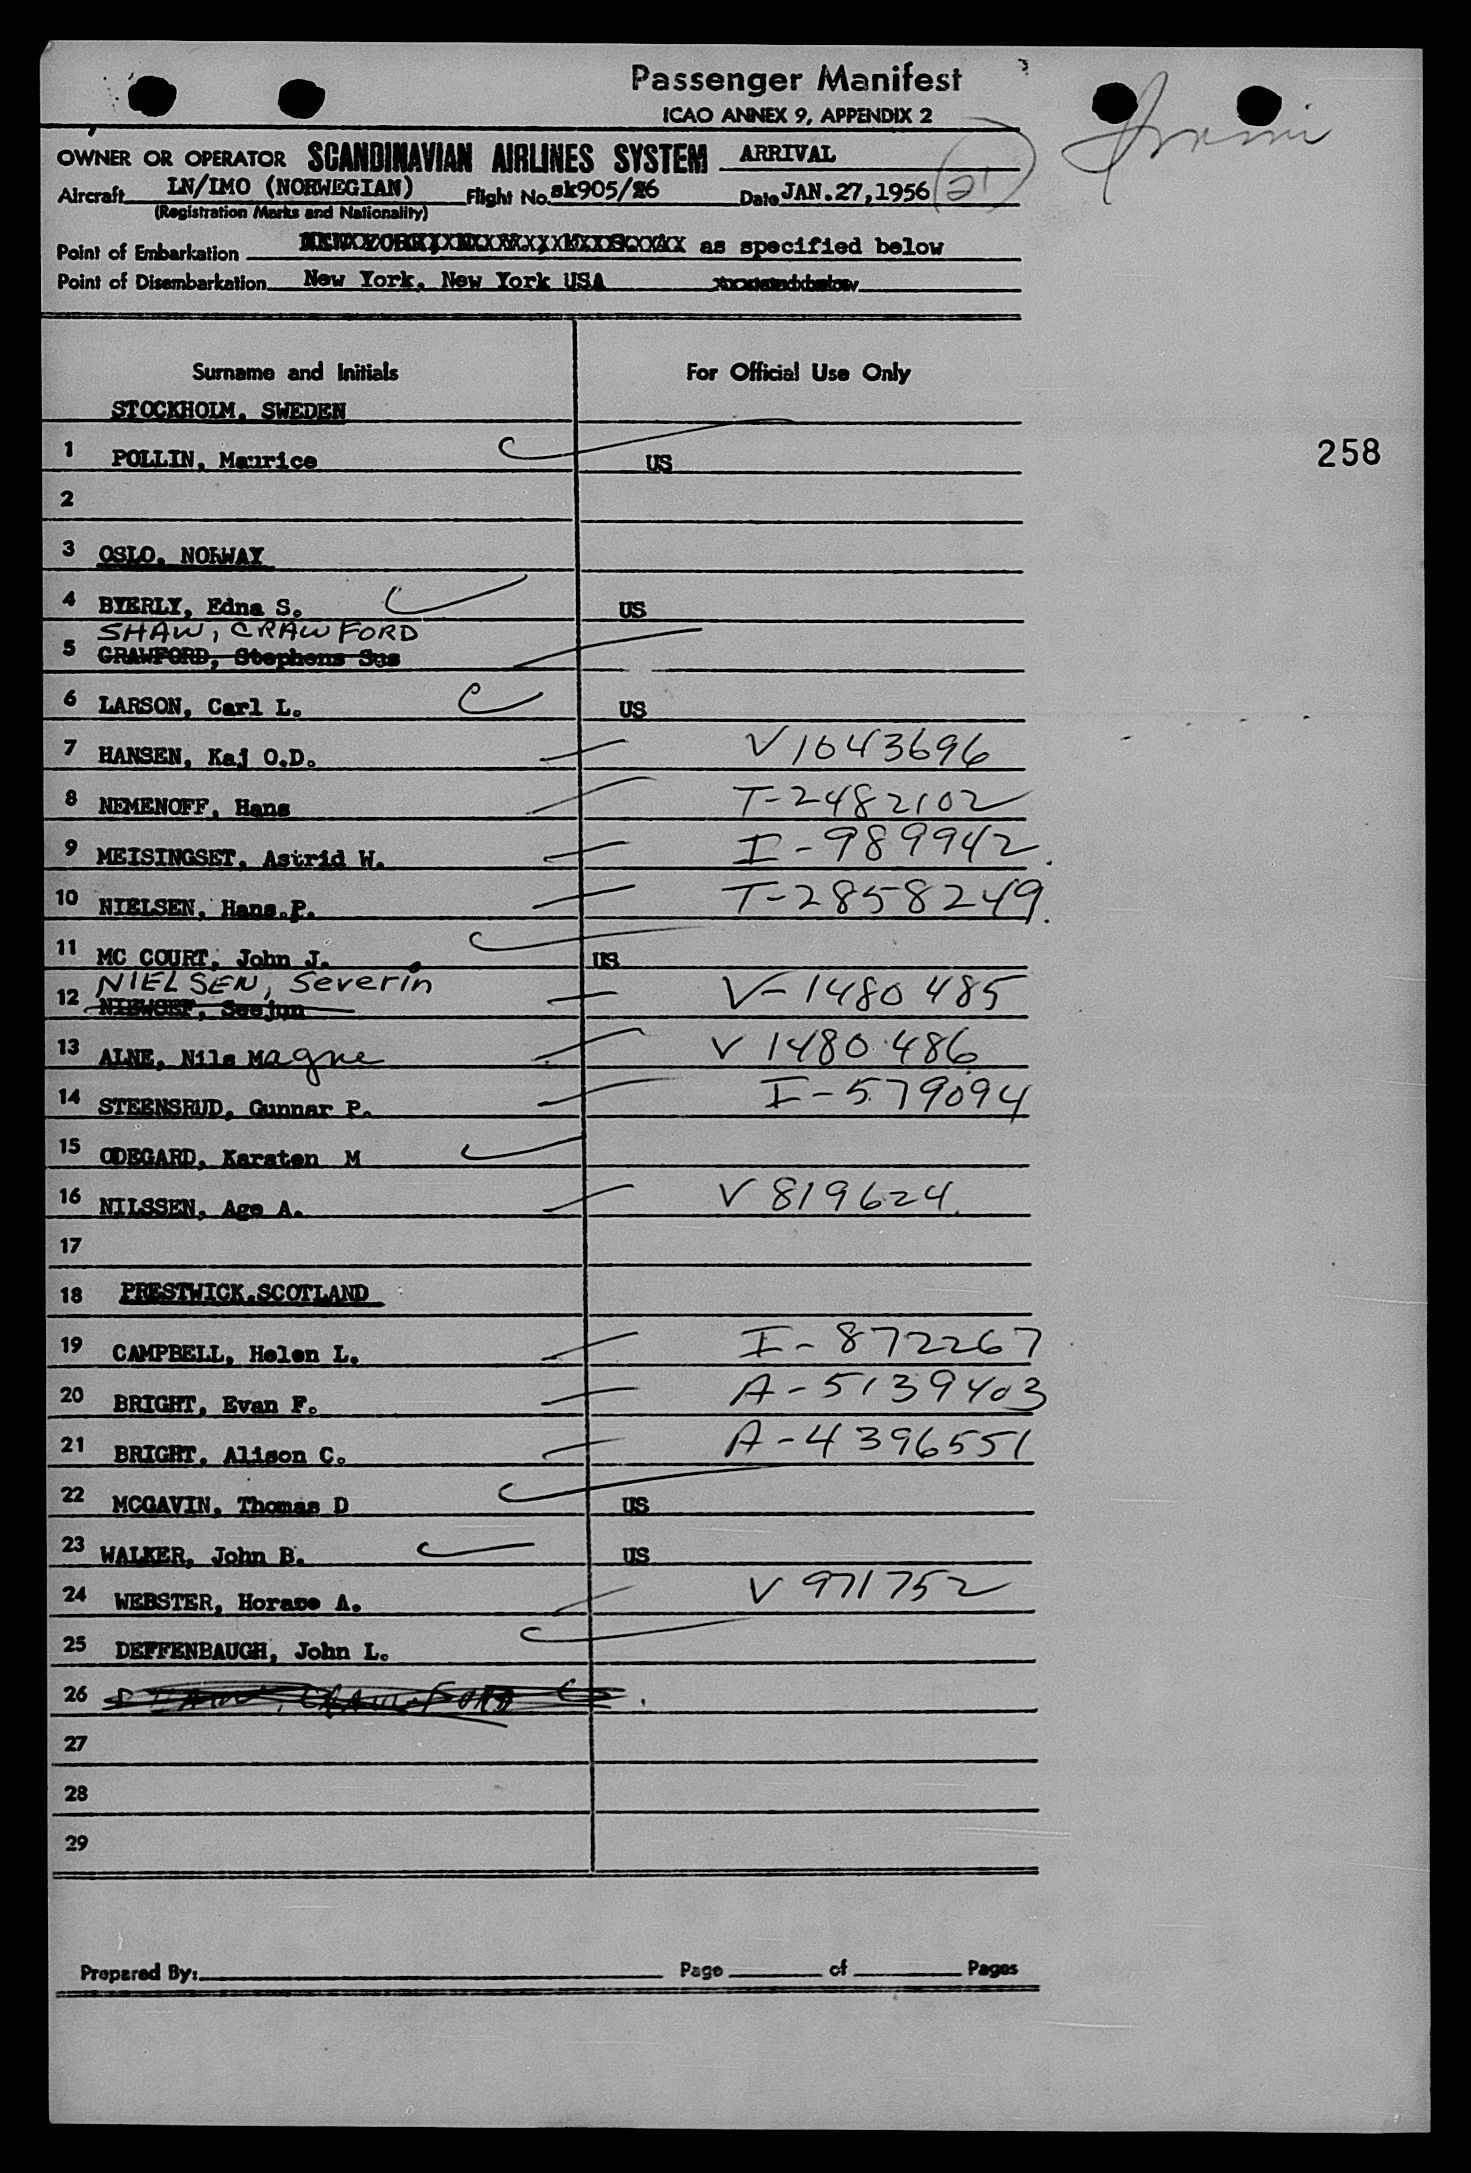 Passenger Manifest
ICAO ANNEX 9, APPENDIX 2
OWNER OR OPERATOR SCANDINAVIAN AIRLINES SYSTEM ARRIVAL
Aircraft LN/IMO (NORWEGIAN) Flight No. sk905/26 Date JAN.27,1956 (21)
(Registration Marks and Nationality)
Point of Embarkation as specified below
Point of Disembarkation New York, New York USA
Surname and Initials For Official Use Only
STOCKHOLM, SWEDEN
258
1 POLLIN, Maurice US
2
3 OSLO, NORWAY
4 BYERLY, Edna S. US
SHAW, CRAWFORD
5 CRAWFORD, Stephens Sus
6 LARSON, Carl L. US
7 HANSEN, Kaj O.D. V 1643696
8 NEMENOFF, Hans T-2482102
9 MEISINGSET, Astrid W. I-989942.
10 NIELSEN, Hans.P. T-2858249.
11 MC COURT, John J. US
NIELSEN, Severin
12 V-1480485
13 ALNE, Nils Magne V 1480486
14 STEENSRUD, Gunnar P. I-579094
15 ODEGARD, Karsten M
16 NILSSEN, Age A. V 819624.
17
18 PRESTWICK.SCOTLAND
19 CAMPBELL, Helen L. I-872267
20 BRIGHT, Evan F. A-5139403
21 BRIGHT, Alison C. A-4396551
22 MCGAVIN, Thomas D US
23 WALKER, John B. US
24 WEBSTER, Horace A. V 971752
25 DEFFENBAUGH, John L.
26 SHAW, CRAWFORD
27
28
29
Prepared By: Page of Pages